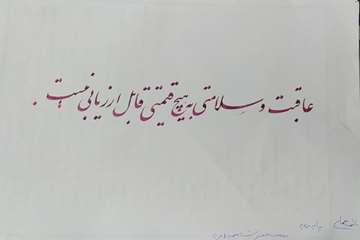 عاقبت و سلامتی به هیچ قیمتی قابل ارزیابی نیست.